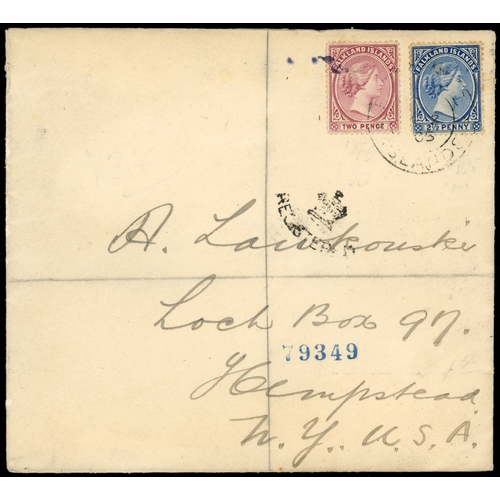 FALKLAND ISLANDS
TWO PENCE
FALKLAND ISLANDS
2½ PENNY
REGISTERED
A. Lawkouski
Loch Box 97.
79349
Hempstead
N.Y. U.S.A.